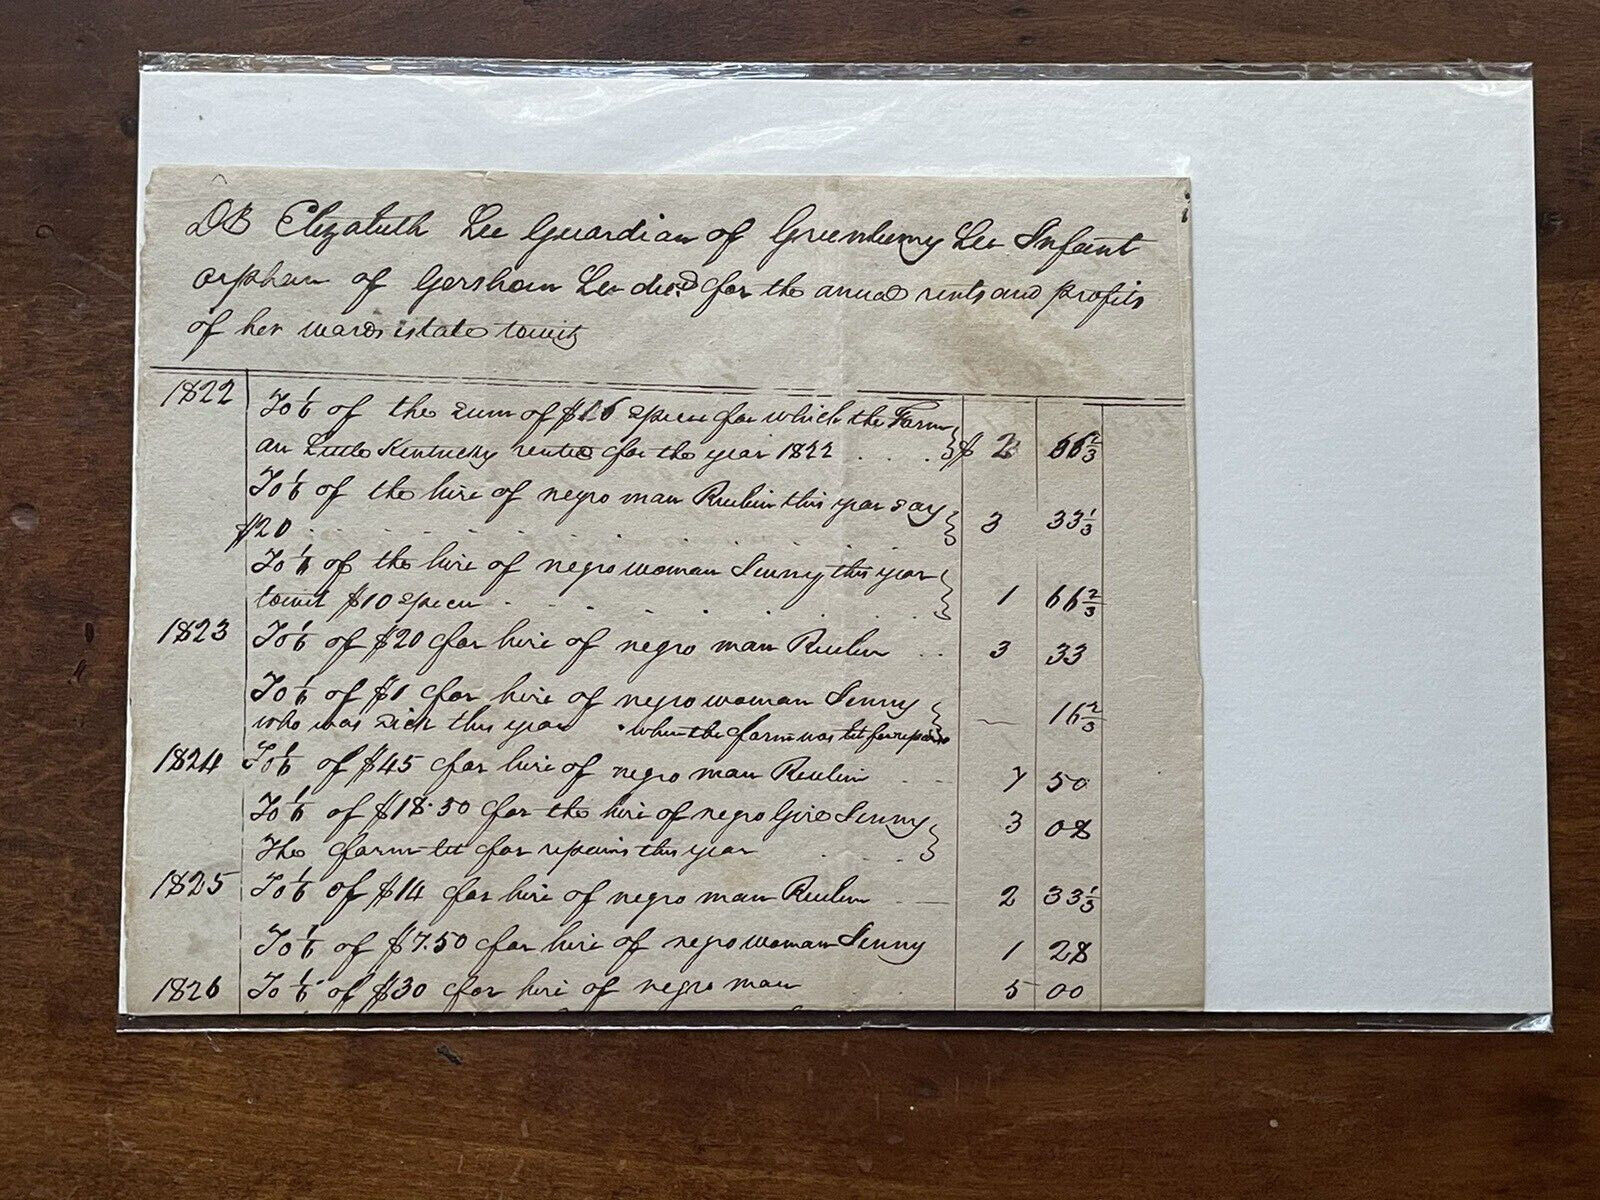 DR Elizabeth Lee Guardian of Greenberry Lee Infant
orphan of Gersham Lee decd for the anual rents and profits
of her wards estate towit
1822 To 1/6 of the sum of $16 specie for which the Farm
on Little Kentucky rented for the year 1822 . . . . $ 2 66 2/3
To 1/6 of the hire of negro man Reubin this year say
$20 . . . . 3 33 1/3
To 1/6 of the hire of negro woman Jenny this year
towit $10 specie . . . . 1 66 2/3
1823 To 1/6 of $20 for hire of negro man Reubin . . 3 33
To 1/6 of $1 for hire of negro woman Jenny
who was sick this year when the farm was let for repairs — 16 2/3
1824 To 1/6 of $45 for hire of negro man Reubin . . 7 50
To 1/6 of $18.50 for the hire of negro Girl Jenny 3 08
The farm let for repairs this year . . . .
1825 To 1/6 of $14 for hire of negro man Reubin — 2 33 1/3
To 1/6 of $7.50 for hire of negro woman Jenny 1 28
1826 To 1/6 of $30 for hire of negro man 5 00